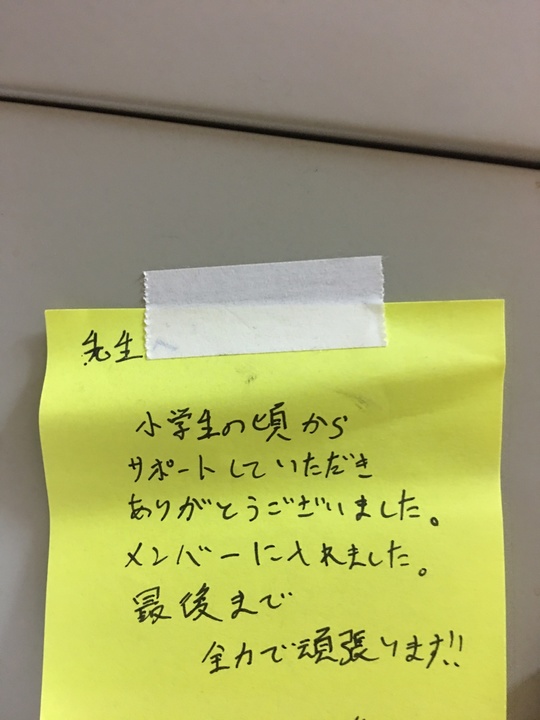 先生へ
小学生の頃から
サポートしていただき
ありがとうございました。
メンバーに入れました。
最後まで
全力で頑張ります!!